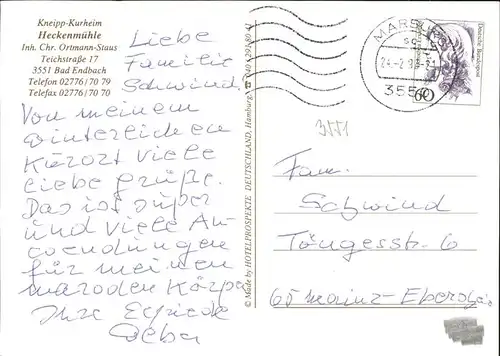 Kneipp-Kurheim
Heckenmühle
Inh. Chr. Ortmann-Staus
Teichstraße 17
3551 Bad Endbach
Telefon 02776/70 79
Telefax 02776/70 70
Liebe
Familie
Schwind.
Von meinem
winterlichen
Kurort viele
liebe grüße.
Das ist super
und viele An-
wendungen
für meinen
maroden Körper
Ihre Elfriede
© Made by HOTELPROSPEKTE DEUTSCHLAND, Hamburg,
MARBURG
3550
Deutsche Bundespost
60
3551
Fam.
Schwind
Töngesstr. 6
65 Mainz-Ebersheim